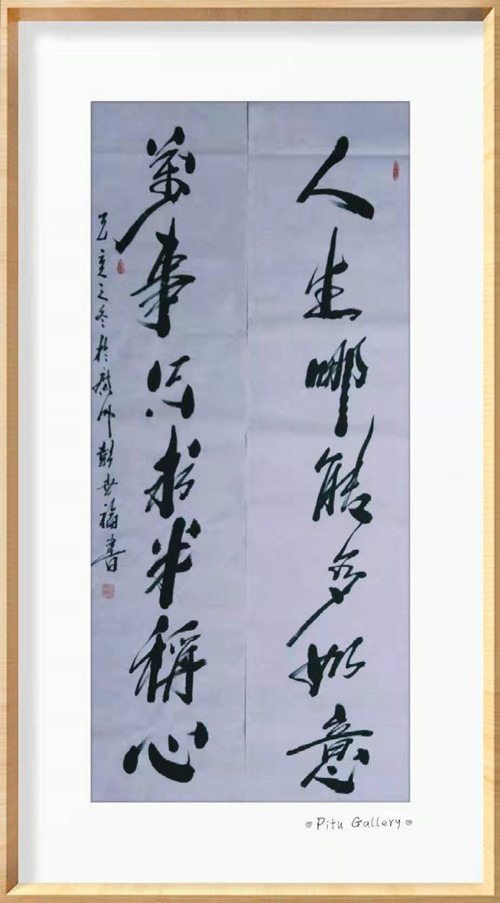 人生哪能多如意
萬事只求半稱心
己亥之冬於苏州彭世福書
Pitu Gallery